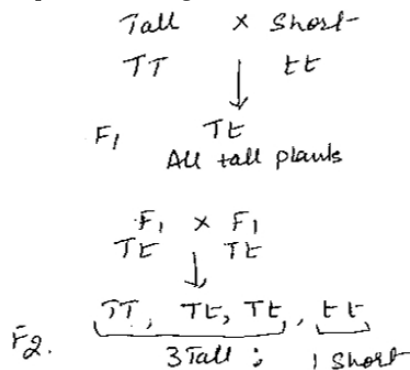 Tall × Short
TT tt
F1 Tt
All tall plants
F1 × F1
Tt Tt
TT, Tt, Tt, tt
F2. 3 Tall ; 1 Short